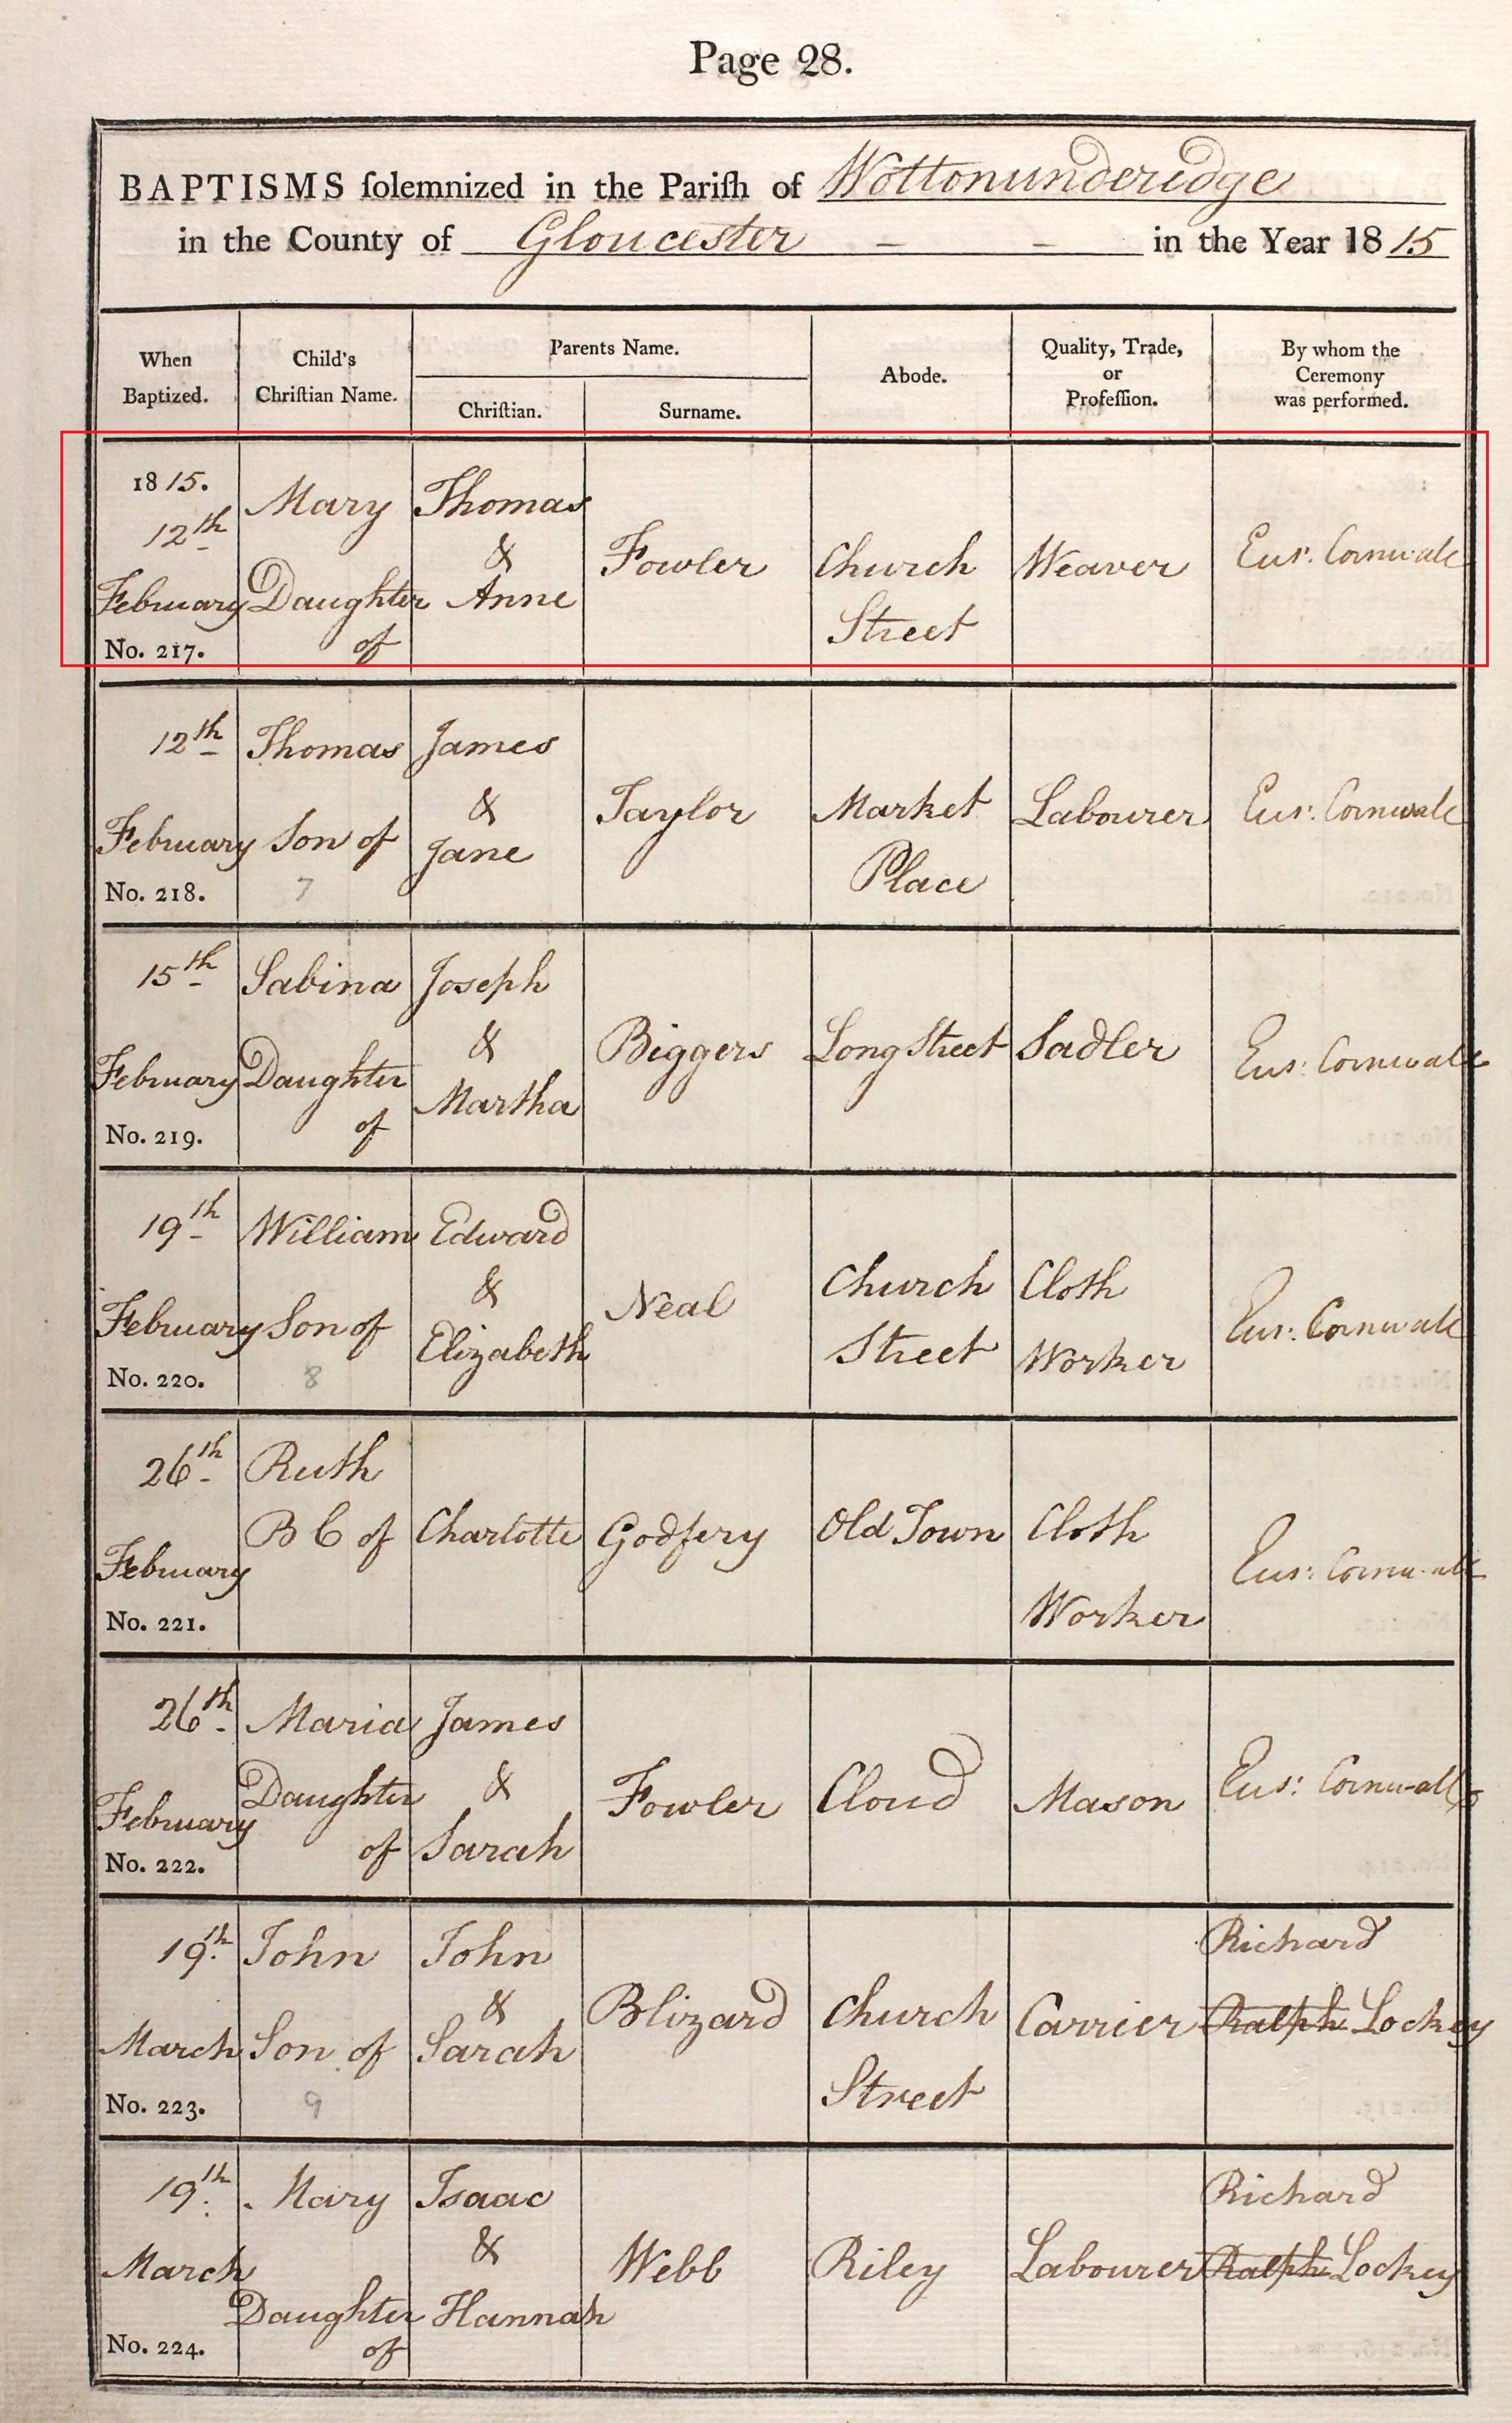 Page 28.
BAPTISMS solemnized in the Parish of Wottonunderidge
in the County of Gloucester - - in the Year 1815
When Baptized.
Child's Christian Name.
Parents Name.
Christian.
Surname.
Abode.
Quality, Trade, or Profession.
By whom the Ceremony was performed.
1815.
12th
February
No. 217.
Mary
Daughter
of
Thomas
&
Anne
Fowler
Church
Street
Weaver
Eus: Cornwall
12th
February
No. 218.
Thomas
Son of
7
James
&
Jane
Taylor
Market
Place
Labourer
Eus: Cornwall
15th
February
No. 219.
Sabina
Daughter
of
Joseph
&
Martha
Biggers
Long Street
Sadler
Eus: Cornwall
19th
February
No. 220.
William
Son of
8
Edward
&
Elizabeth
Neal
Church
Street
Cloth
Worker
Eus: Cornwall
26th
February
No. 221.
Ruth
B C of
Charlotte
Godfery
Old Town
Cloth
Worker
Eus: Cornwall
26th
February
No. 222.
Maria
Daughter
of
James
&
Sarah
Fowler
Cloud
Mason
Eus: Cornwall
19th
March
No. 223.
John
Son of
9
John
&
Sarah
Blizard
Church
Street
Carrier
Richard
Ralph Lockey
19th
March
No. 224.
Mary
Daughter
of
Isaac
&
Hannah
Webb
Riley
Labourer
Richard
Ralph Lockey